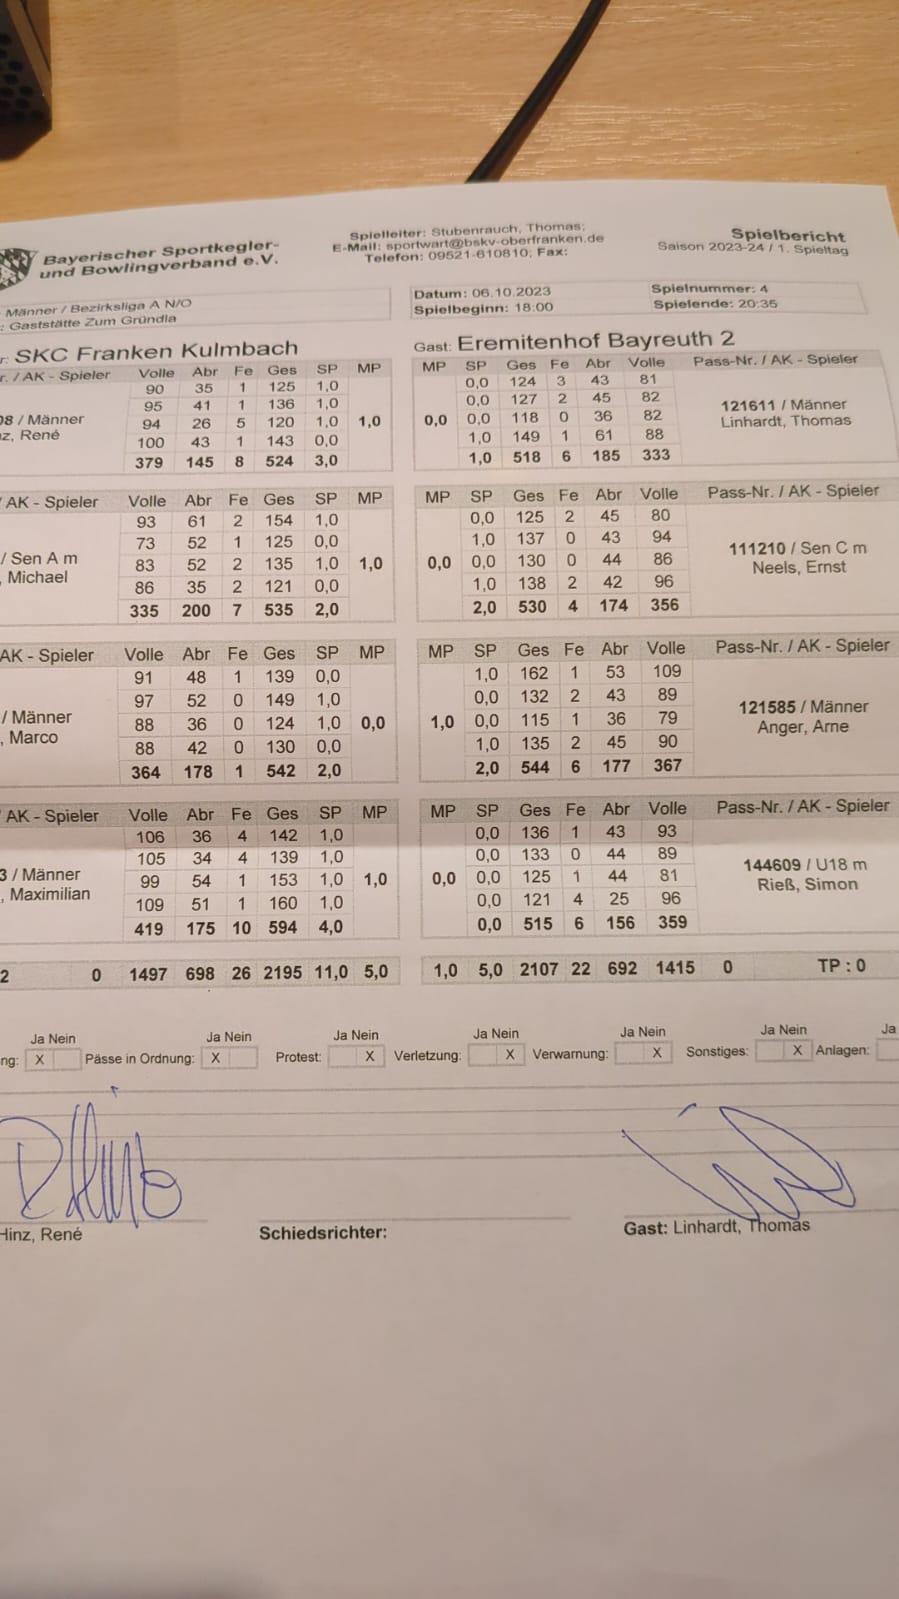 Bayerischer Sportkegler-
und Bowlingverband e.V.
Spielleiter: Stubenrauch, Thomas;
E-Mail: sportwart@bskv-oberfranken.de
Telefon: 09521-610810; Fax:
Spielbericht
Saison 2023-24 / 1. Spieltag
Männer / Bezirksliga A N/O
: Gaststätte Zum Gründla
Datum: 06.10.2023
Spielbeginn: 18:00
Spielnummer: 4
Spielende: 20:35
r: SKC Franken Kulmbach
Gast: Eremitenhof Bayreuth 2
r. / AK - Spieler Volle Abr Fe Ges SP MP MP SP Ges Fe Abr Volle Pass-Nr. / AK - Spieler
90 35 1 125 1,0 0,0 124 3 43 81
95 41 1 136 1,0 0,0 127 2 45 82
08 / Männer 94 26 5 120 1,0 1,0 0,0 0,0 118 0 36 82 121611 / Männer
z, René 100 43 1 143 0,0 1,0 149 1 61 88 Linhardt, Thomas
379 145 8 524 3,0 1,0 518 6 185 333
/ AK - Spieler Volle Abr Fe Ges SP MP MP SP Ges Fe Abr Volle Pass-Nr. / AK - Spieler
93 61 2 154 1,0 0,0 125 2 45 80
73 52 1 125 0,0 1,0 137 0 43 94
/ Sen A m 83 52 2 135 1,0 1,0 0,0 0,0 130 0 44 86 111210 / Sen C m
, Michael 86 35 2 121 0,0 1,0 138 2 42 96 Neels, Ernst
335 200 7 535 2,0 2,0 530 4 174 356
AK - Spieler Volle Abr Fe Ges SP MP MP SP Ges Fe Abr Volle Pass-Nr. / AK - Spieler
91 48 1 139 0,0 1,0 162 1 53 109
97 52 0 149 1,0 0,0 132 2 43 89
/ Männer 88 36 0 124 1,0 0,0 1,0 0,0 115 1 36 79 121585 / Männer
, Marco 88 42 0 130 0,0 1,0 135 2 45 90 Anger, Arne
364 178 1 542 2,0 2,0 544 6 177 367
/ AK - Spieler Volle Abr Fe Ges SP MP MP SP Ges Fe Abr Volle Pass-Nr. / AK - Spieler
106 36 4 142 1,0 0,0 136 1 43 93
105 34 4 139 1,0 0,0 133 0 44 89
3 / Männer 99 54 1 153 1,0 1,0 0,0 0,0 125 1 44 81 144609 / U18 m
, Maximilian 109 51 1 160 1,0 0,0 121 4 25 96 Rieß, Simon
419 175 10 594 4,0 0,0 515 6 156 359
2 0 1497 698 26 2195 11,0 5,0 1,0 5,0 2107 22 692 1415 0 TP : 0
Ja Nein Ja Nein Ja Nein Ja Nein Ja Nein Ja Nein Ja
ng: X Pässe in Ordnung: X Protest: X Verletzung: X Verwarnung: X Sonstiges: X Anlagen:
Hinz, René Schiedsrichter: Gast: Linhardt, Thomas